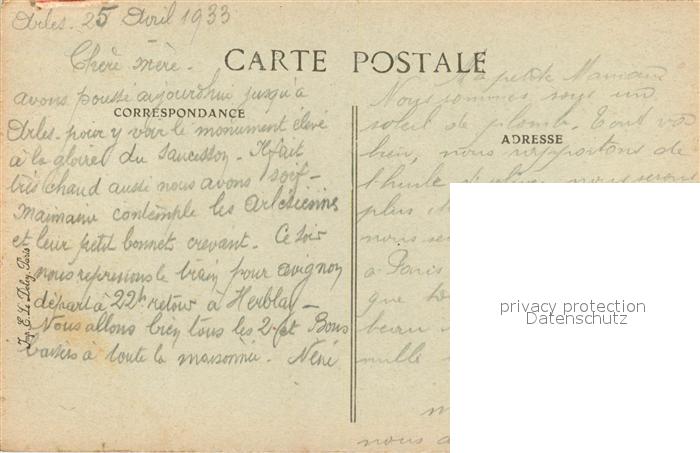 Arles. 25 Avril 1933
CARTE POSTALE
Chère mère.
avons poussé aujourd'hui jusqu'à
CORRESPONDANCE
Arles pour y voir le monument élevé
à la gloire du Saucisson. Il fait
très chaud aussi nous avons soif -
Mainaine contemple les Arlésiennes
et leur petit bonnets crevant. Ce soir
nous reprenons le train pour avignon
départ à 22h retour à Herblay -
Nous allons bien tous les 2 et Bons
baisers à toute la maisonnée. Néné
Imp. E. Le Deley, Paris
Ma petite Maman
Nous sommes sous un
soleil de plomb. Tout va
ADRESSE
bien, nous rapportons de
l'huile d'olive, nous serons
plus
nous se
à Paris
que
beau
nulle
nous a
privacy protection
Datenschutz